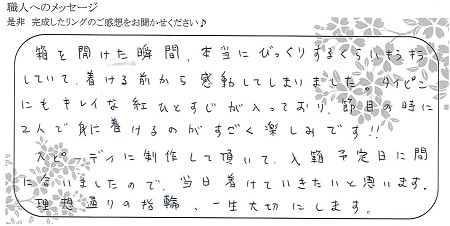 職人へのメッセージ
是非 完成したリングのご感想をお聞かせください♪
箱を開けた瞬間、本当にびっくりするくらいキラキラ
していて、着ける前から感動してしまいました。タイピン
にもキレイな紅ひとすじが入っており、節目の時に
2人で身に着けるのがすごく楽しみです!!
スピーディに制作して頂いて、入籍予定日に間
に合いましたので、当日着けていきたいと思います。
理想通りの指輪、一生大切にします。